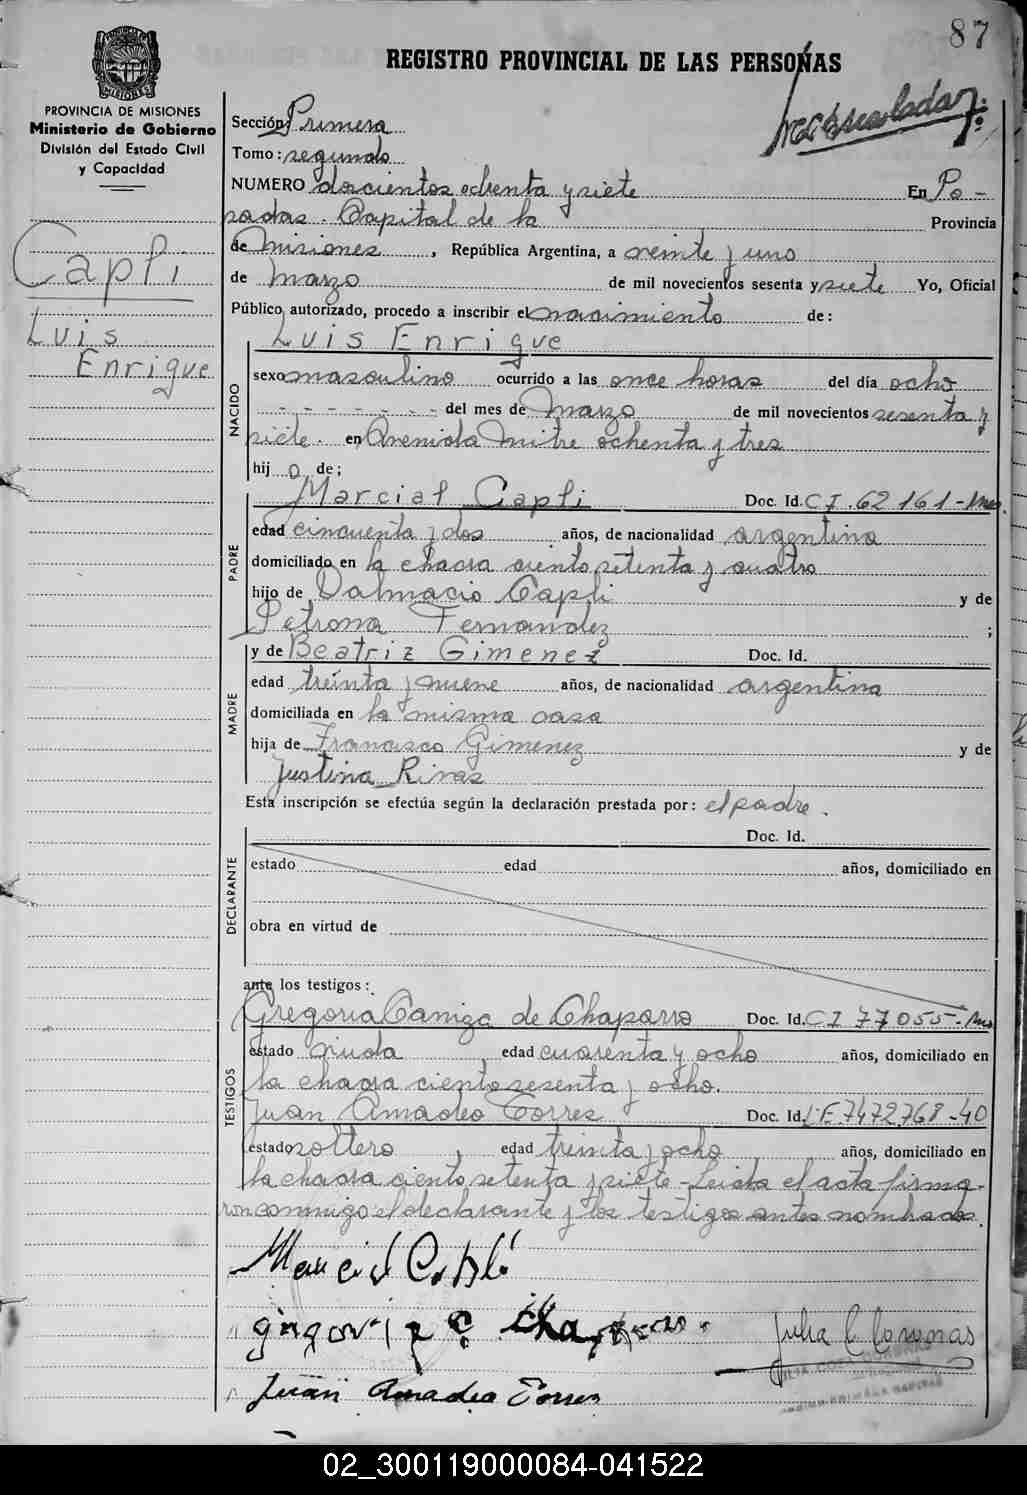 87
REGISTRO PROVINCIAL DE LAS PERSONAS
PROVINCIA DE MISIONES
Ministerio de Gobierno
División del Estado Civil
y Capacidad
Capli
Luis
Enrique
Sección: Primera
Tomo: segundo
NUMERO doscientos ochenta y siete En Po-
sadas. Capital de la Provincia
de Misiones, República Argentina, a veinte y uno
de marzo de mil novecientos sesenta y siete Yo, Oficial
Público autorizado, procedo a inscribir el nacimiento de:
Luis Enrique
NACIDO
sexo masculino ocurrido a las once horas del día ocho
- - - - - - - del mes de Marzo de mil novecientos sesenta y
siete. en Avenida Mitre ochenta y tres
hij o de;
PADRE
Marcial Capli Doc. Id. CI. 62161-Mnes.
edad cincuenta y dos años, de nacionalidad argentina
domiciliado en la chacra ciento setenta y cuatro
hijo de Dalmacio Capli y de
Petrona Fernandez ;
MADRE
y de Beatriz Gimenez Doc. Id.
edad treinta y nueve años, de nacionalidad argentina
domiciliada en la misma casa
hija de Francisco Gimenez y de
Justina Rivas
Esta inscripción se efectúa según la declaración prestada por: el padre.
DECLARANTE
Doc. Id.
estado edad años, domiciliado en
obra en virtud de
ante los testigos:
TESTIGOS
Gregoria Caniza de Chaparro Doc. Id. CI 77055-Mns
estado viuda, edad cuarenta y ocho años, domiciliado en
la chacra ciento sesenta y ocho.
Juan Amadeo Torres Doc. Id. LE 7472768-40
estado soltero, edad treinta y ocho, años, domiciliado en
la chacra ciento setenta y siete-Leida el acta firma-
ron conmigo el declarante y los testigos antes nombrados.
Marcial Capli
gregoria C Chaparro.
Juan Amadeo Torres
02_300119000084-041522